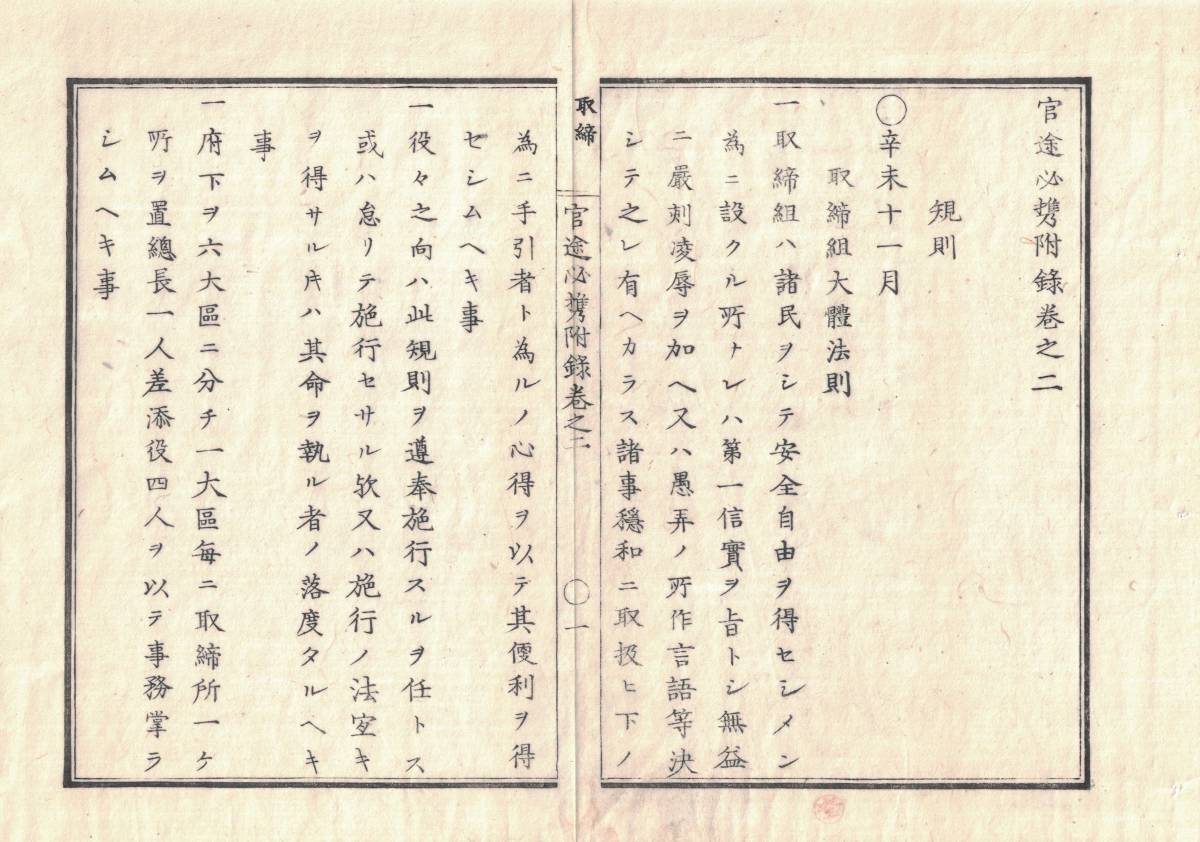 官途必携附錄卷之二
規則
〇辛未十一月
取締組大體法則
一取締組ハ諸民ヲシテ安全自由ヲ得セシメン
為ニ設クル所ナレハ第一信實ヲ旨トシ無益
ニ嚴刻凌辱ヲ加ヘ又ハ愚弄ノ所作言語等決
シテ之レ有ヘカラス諸事穩和ニ取扱ヒ下ノ
取締
官途必携附錄卷之二
〇一
為ニ手引者ト為ルノ心得ヲ以テ其便利ヲ得
セシムヘキ事
一役々之向ハ此規則ヲ遵奉施行スルヲ任トス
或ハ怠リテ施行セサル欤又ハ施行ノ法宜キ
ヲ得サル𪜈ハ其命ヲ執ル者ノ落度タルヘキ
事
一府下ヲ六大區ニ分チ一大區每ニ取締所一ケ
所ヲ置總長一人差添役四人ヲ以テ事務掌ラ
シムヘキ事